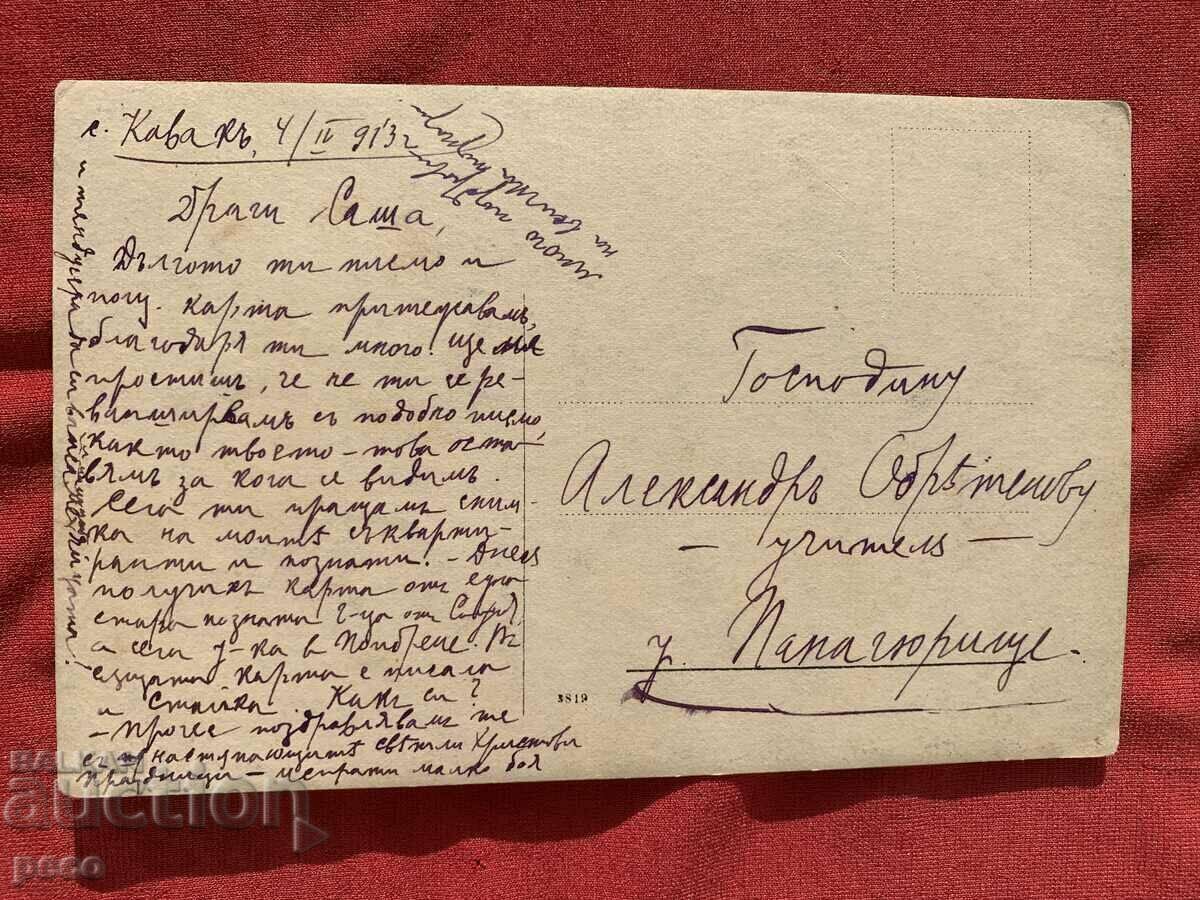 с. Кавакъ, 4/IV 913
Драги Саша,
Дългото ти писмо и
карта притежавамъ,
благодаря ти много. Ще ме
простишъ, че не ти се ре-
ванширвамъ съ подобно писмо,
както твоето – това оста-
вямъ за кога се видимъ.
Сега ти пращамъ сним-
ка на моитѣ съкварти-
ранти и познати. – Днесъ
получихъ карта отъ една
стара позната г-ца отъ
а сега у-ка в
същата карта е писала
и Стайка. Какъ си?
– Прочее поздравлявамъ те
съ настѫпающитѣ свѣтли Христови
праздници – изпрати малко боя
и
много поздрави
на всички
Господину
Александръ Обрѣтеновъ
– учителъ –
у. Панагюрище.
3819
BALKAN
auction
peso